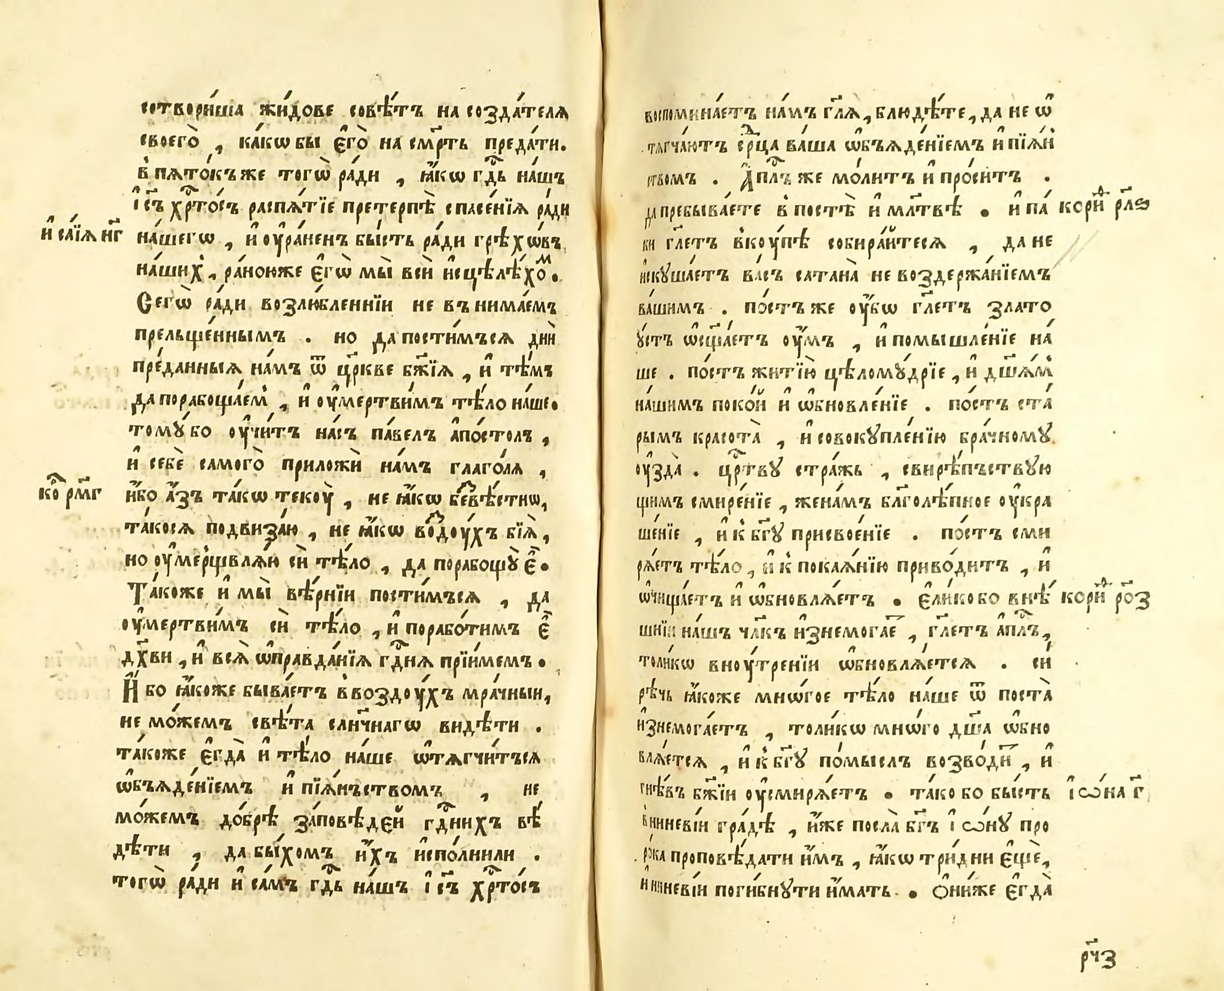 сотвори́ша жи́дове совѣ́тъ на созда́телѧ
своего̀ , ка́кѡ бы є҆го̀ на см҃рть преда́ти.
в пѧто́къ же тогѡ̀ ра́ди , ꙗ҆́кѡ гд҇ь на́шъ
і҆с҃ъ хр҇то́съ распѧ́тїе претерпѣ̀ спасе́нїѧ ра́ди
и҆са́їѧ н҃г
на́шегѡ , и҆ ᲂу҆ра́ненъ бы́сть ра́ди грѣхѡ́въ
на́шихъ , ра́ною же є҆гѡ̀ мы̀ всѝ и҆сцѣлѣ́хоⷨ.
Сегѡ̀ ра́ди возлю́бленнїи не внима́емъ
прельще́ннымъ . но да пости́мъсѧ дни̑
пре́данныѧ на́мъ ѿ цр҃кве бж҃їѧ , и҆ тѣ́мъ
да порабоща́емъ , и҆ ᲂу҆мертви́мъ тѣ́ло на́ше.
томꙋ́ бо ᲂу҆чи́тъ на́съ па́велъ а҆по́столъ ,
и҆ себѐ самого̀ приложѝ на́мъ глаго́лѧ ,
ко҇ рм҃г
и҆́бо а҆́зъ та́кѡ текꙋ̀ , не ꙗ҆́кѡ безвѣ́стнѡ,
та́косѧ подвиза́ю , не ꙗ҆́кѡ воздꙋ́хъ бїѧ̀,
но ᲂу҆мерщвлѧ́ю сѝ тѣ́ло , да порабощꙋ̀ є҆̀.
Та́коже и҆ мы̀ вѣ́рнїи пости́мъсѧ , да
ᲂу҆мертви́мъ сѝ тѣ́ло , и҆ порабо́тимъ є҆̀
дх҃ви , и҆ всѧ̑ ѡ҆правда́нїѧ гд҇нѧ прїи́мемъ.
И҆́бо ꙗ҆́коже быва́етъ в воздꙋ́хъ мра́чныи,
не мо́жемъ свѣ́та слн҃чнагѡ ви́дѣти .
та́коже є҆гда̀ и҆ тѣ́ло на́ше ѡ҆тѧгчи́тъсѧ
ѡ҆бъѧде́нїемъ и҆ пїѧ́нъствомъ , не
мо́жемъ до́брѣ за́повѣдей гд҇нихъ вѣ́
дѣти , да бы́хомъ и҆́хъ и҆спо́лнили .
тогѡ̀ ра́ди и҆ са́мъ гд҇ь на́шъ і҆с҃ъ хр҇то́съ
воспомина́етъ на́мъ гл҃ѧ, блюдѣ́те, да не ѡ҆
тѧгча́ютъ се҇рца ва́ша ѡ҆бъѧде́нїемъ и҆ пїѧ́н
ствомъ . А҆пл҇ъ же мо́литъ и҆ про́ситъ .
да пребыва́ете в постѣ̀ и҆ мл҃твѣ . и҆ па́
кориⷴ҇ рл҃ѕ
ки гл҃етъ вкꙋ́пѣ собира́йтесѧ , да не
и҆скꙋша́етъ ва́съ сатана̀ не воздержа́нїемъ
ва́шимъ . по́стъ же ᲂу҆́бѡ гл҃етъ злато
ꙋ́стъ ѡ҆сщ҃а́етъ ᲂу҆́мъ , и҆ помышле́нїе на́
ше . по́стъ житїю̀ цѣломꙋ́дрїе , и҆ дш҃а́мъ
на́шимъ поко́й и҆ ѡ҆бновле́нїе . по́стъ ста́
рымъ красота̀ , и҆ совокꙋпле́нїю бра́чномꙋ
ᲂу҆зда̀ . цр҇тву стра́жъ , свирѣ́пъствꙋю
щимъ смире́нїе , жена́мъ благолѣ́пное ᲂу҆кра
ше́нїе , и҆ к бг҃ꙋ присвое́нїе . по́стъ сми
рѧ́етъ тѣ́ло , и҆ к покаѧ́нїю приво́дитъ , и҆
ѡ҆чища́етъ и҆ ѡ҆бновлѧ́етъ . є҆ли́ко бо внѣ́
кориⷴ҇ ро҃з
шнїи на́шъ чл҃къ и҆знемога́е , гл҃етъ а҆пл҇ъ,
толи́кѡ внꙋ́тренїи ѡ҆бновлѧ́етсѧ . сѝ
рѣ́чь ꙗ҆́коже мно́гое тѣ́ло на́ше ѿ поста̀
и҆знемога́етъ , толи́кѡ мно́го дш҃а̀ ѡ҆бно
влѧ́етсѧ , и҆ к бг҃ꙋ по́мыслъ возво́ди , и҆
гнѣ́въ бж҃їи ᲂу҆смирѧ́етъ . та́ко бо бы́сть
і҆ѡ́на г҃
в ниневі́и гра́дѣ , и҆́же посла̀ бг҃ъ і҆ѡ́нꙋ про
ро́ка проповѣ́дати и҆̀мъ , ꙗ҆́кѡ три́ дни є҆щѐ,
и҆ нинеѵі́и поги́бнꙋти и҆́мать . Ѻ҆ни́же є҆гда̀
рч҃з